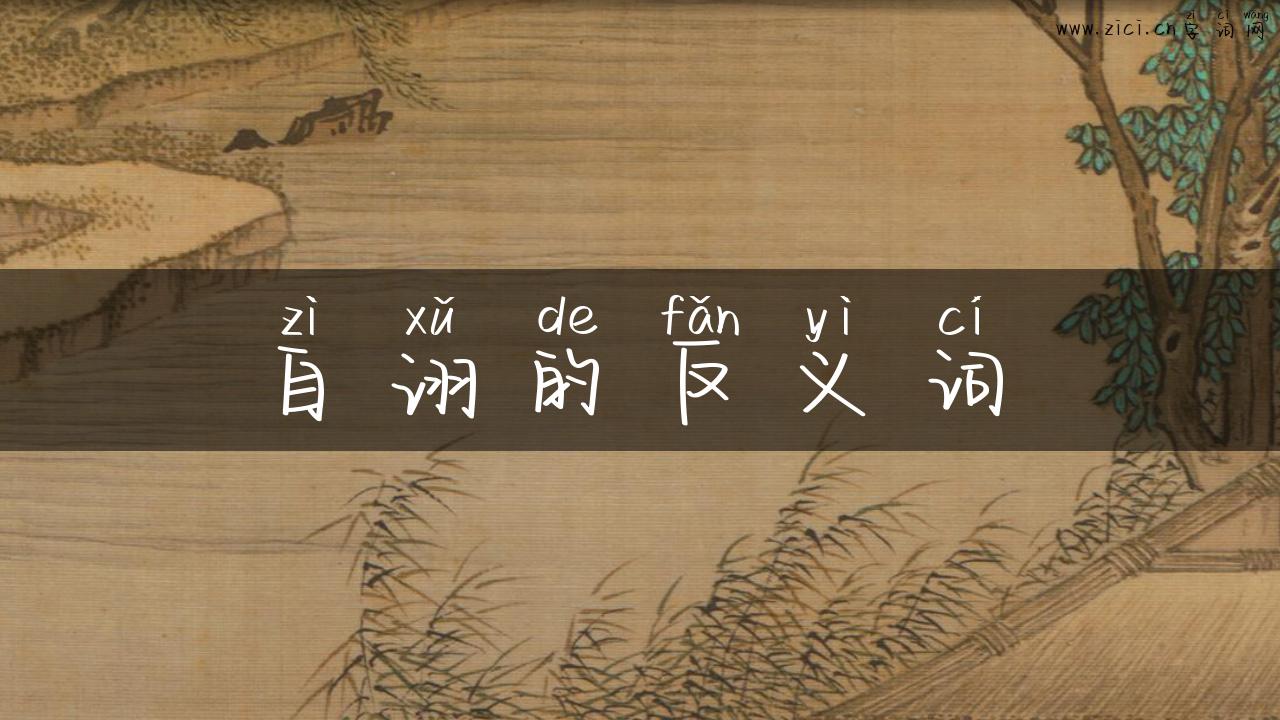 zì cí wǎng
www.zici.cn 字 词 网
zì xǔ de fǎn yì cí
自 诩 的 反 义 词